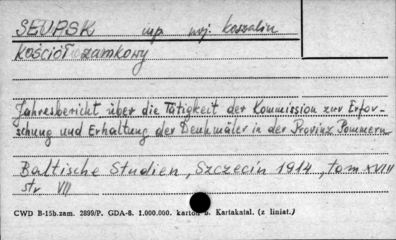 SŁUPSK mp. woj. koszalin
Kościół zamkowy
Jahresbericht über die Tätigkeit der Kommission zur Erfor-
schung und Erhaltung der Denkmäler in der Provinz Pommern
Baltische Studien, Szczecin 1914, tom XVIII
str VII
CWD B-15b.zam. 2899/P. GDA-8. 1.000.000. karton b. Kartakatal. (z liniat.)